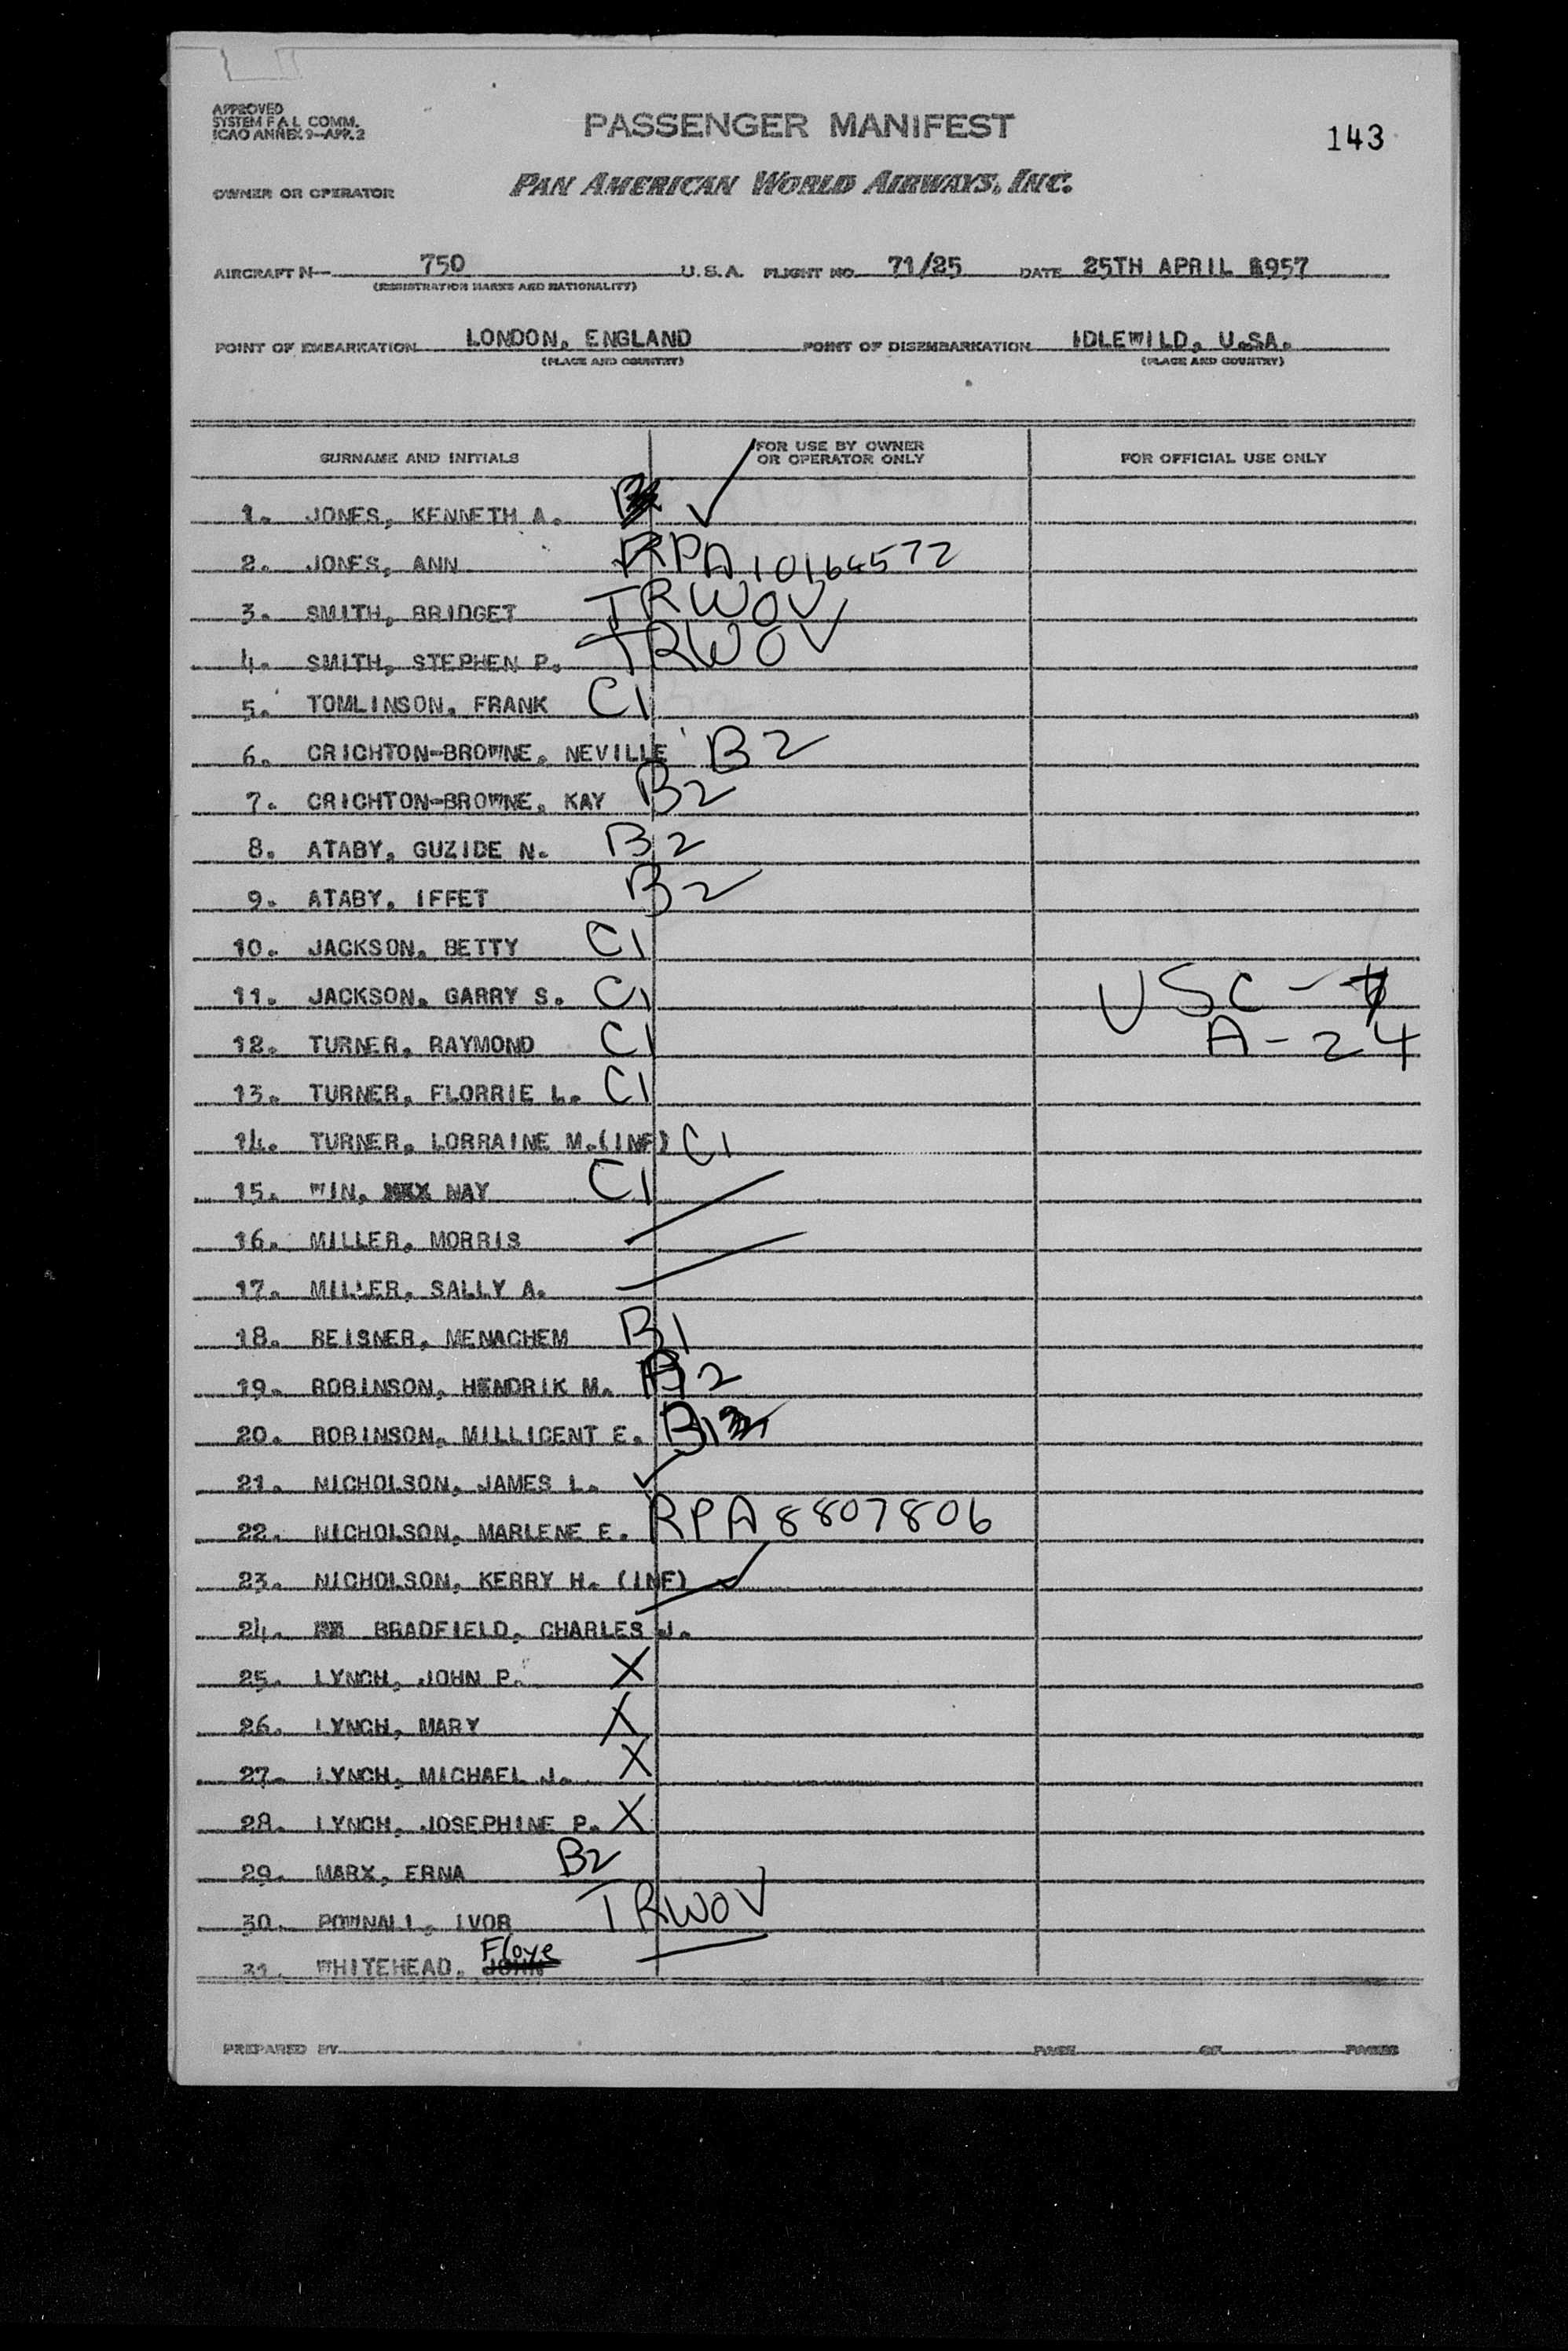 APPROVED
SYSTEM F A L COMM.
ICAO ANNEX 9-APP. 2
PASSENGER MANIFEST
143
OWNER OR OPERATOR
PAN AMERICAN WORLD AIRWAYS, INC.
AIRCRAFT N- 750 U.S.A. FLIGHT NO. 71/25 DATE 25TH APRIL 1957
(REGISTRATION MARKS AND NATIONALITY)
POINT OF EMBARKATION LONDON, ENGLAND POINT OF DISEMBARKATION IDLEWILD, U.SA.
(PLACE AND COUNTRY) (PLACE AND COUNTRY)
SURNAME AND INITIALS FOR USE BY OWNER OR OPERATOR ONLY FOR OFFICIAL USE ONLY
1. JONES, KENNETH A. ✓
2. JONES, ANN RPA 10164572
3. SMITH, BRIDGET TRWOV
4. SMITH, STEPHEN P. TRWOV
5. TOMLINSON, FRANK C1
6. CRICHTON-BROWNE, NEVILLE B2
7. CRICHTON-BROWNE, KAY B2
8. ATABY, GUZIDE N. B2
9. ATABY, IFFET B2
10. JACKSON, BETTY C1
11. JACKSON, GARRY S. C1 USC -
12. TURNER, RAYMOND C1 A - 24
13. TURNER, FLORRIE L. C1
14. TURNER, LORRAINE M.(INF) C1
15. WIN, NAY C1
16. MILLER, MORRIS
17. MILLER, SALLY A.
18. REISNER, MENACHEM B1
19. ROBINSON, HENDRIK M. B2
20. ROBINSON, MILLICENT E. B
21. NICHOLSON, JAMES L. ✓
22. NICHOLSON, MARLENE E. RPA 8807806
23. NICHOLSON, KERRY H. (INF) ✓
24. BRADFIELD, CHARLES J.
25. LYNCH, JOHN P. X
26. LYNCH, MARY X
27. LYNCH, MICHAEL J. X
28. LYNCH, JOSEPHINE P. X
29. MARX, ERNA B2
30. POWNALL, IVOR TRWOV
31. WHITEHEAD, Floye
PREPARED BY PAGE OF PAGES